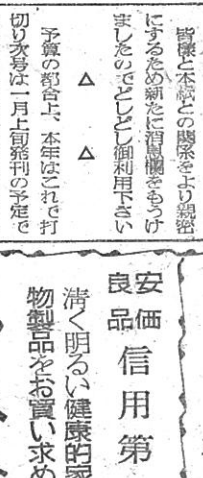 皆様と本紙との関係をより親密
にするため新たに消息欄をもうけ
ましたのでどしどし御利用下さい
△　△
予算の都合上、本年はこれで打
切り次号は一月上旬発刊の予定で
安価
良品
信用第
清く明るい健康的家
物製品をお買い求め